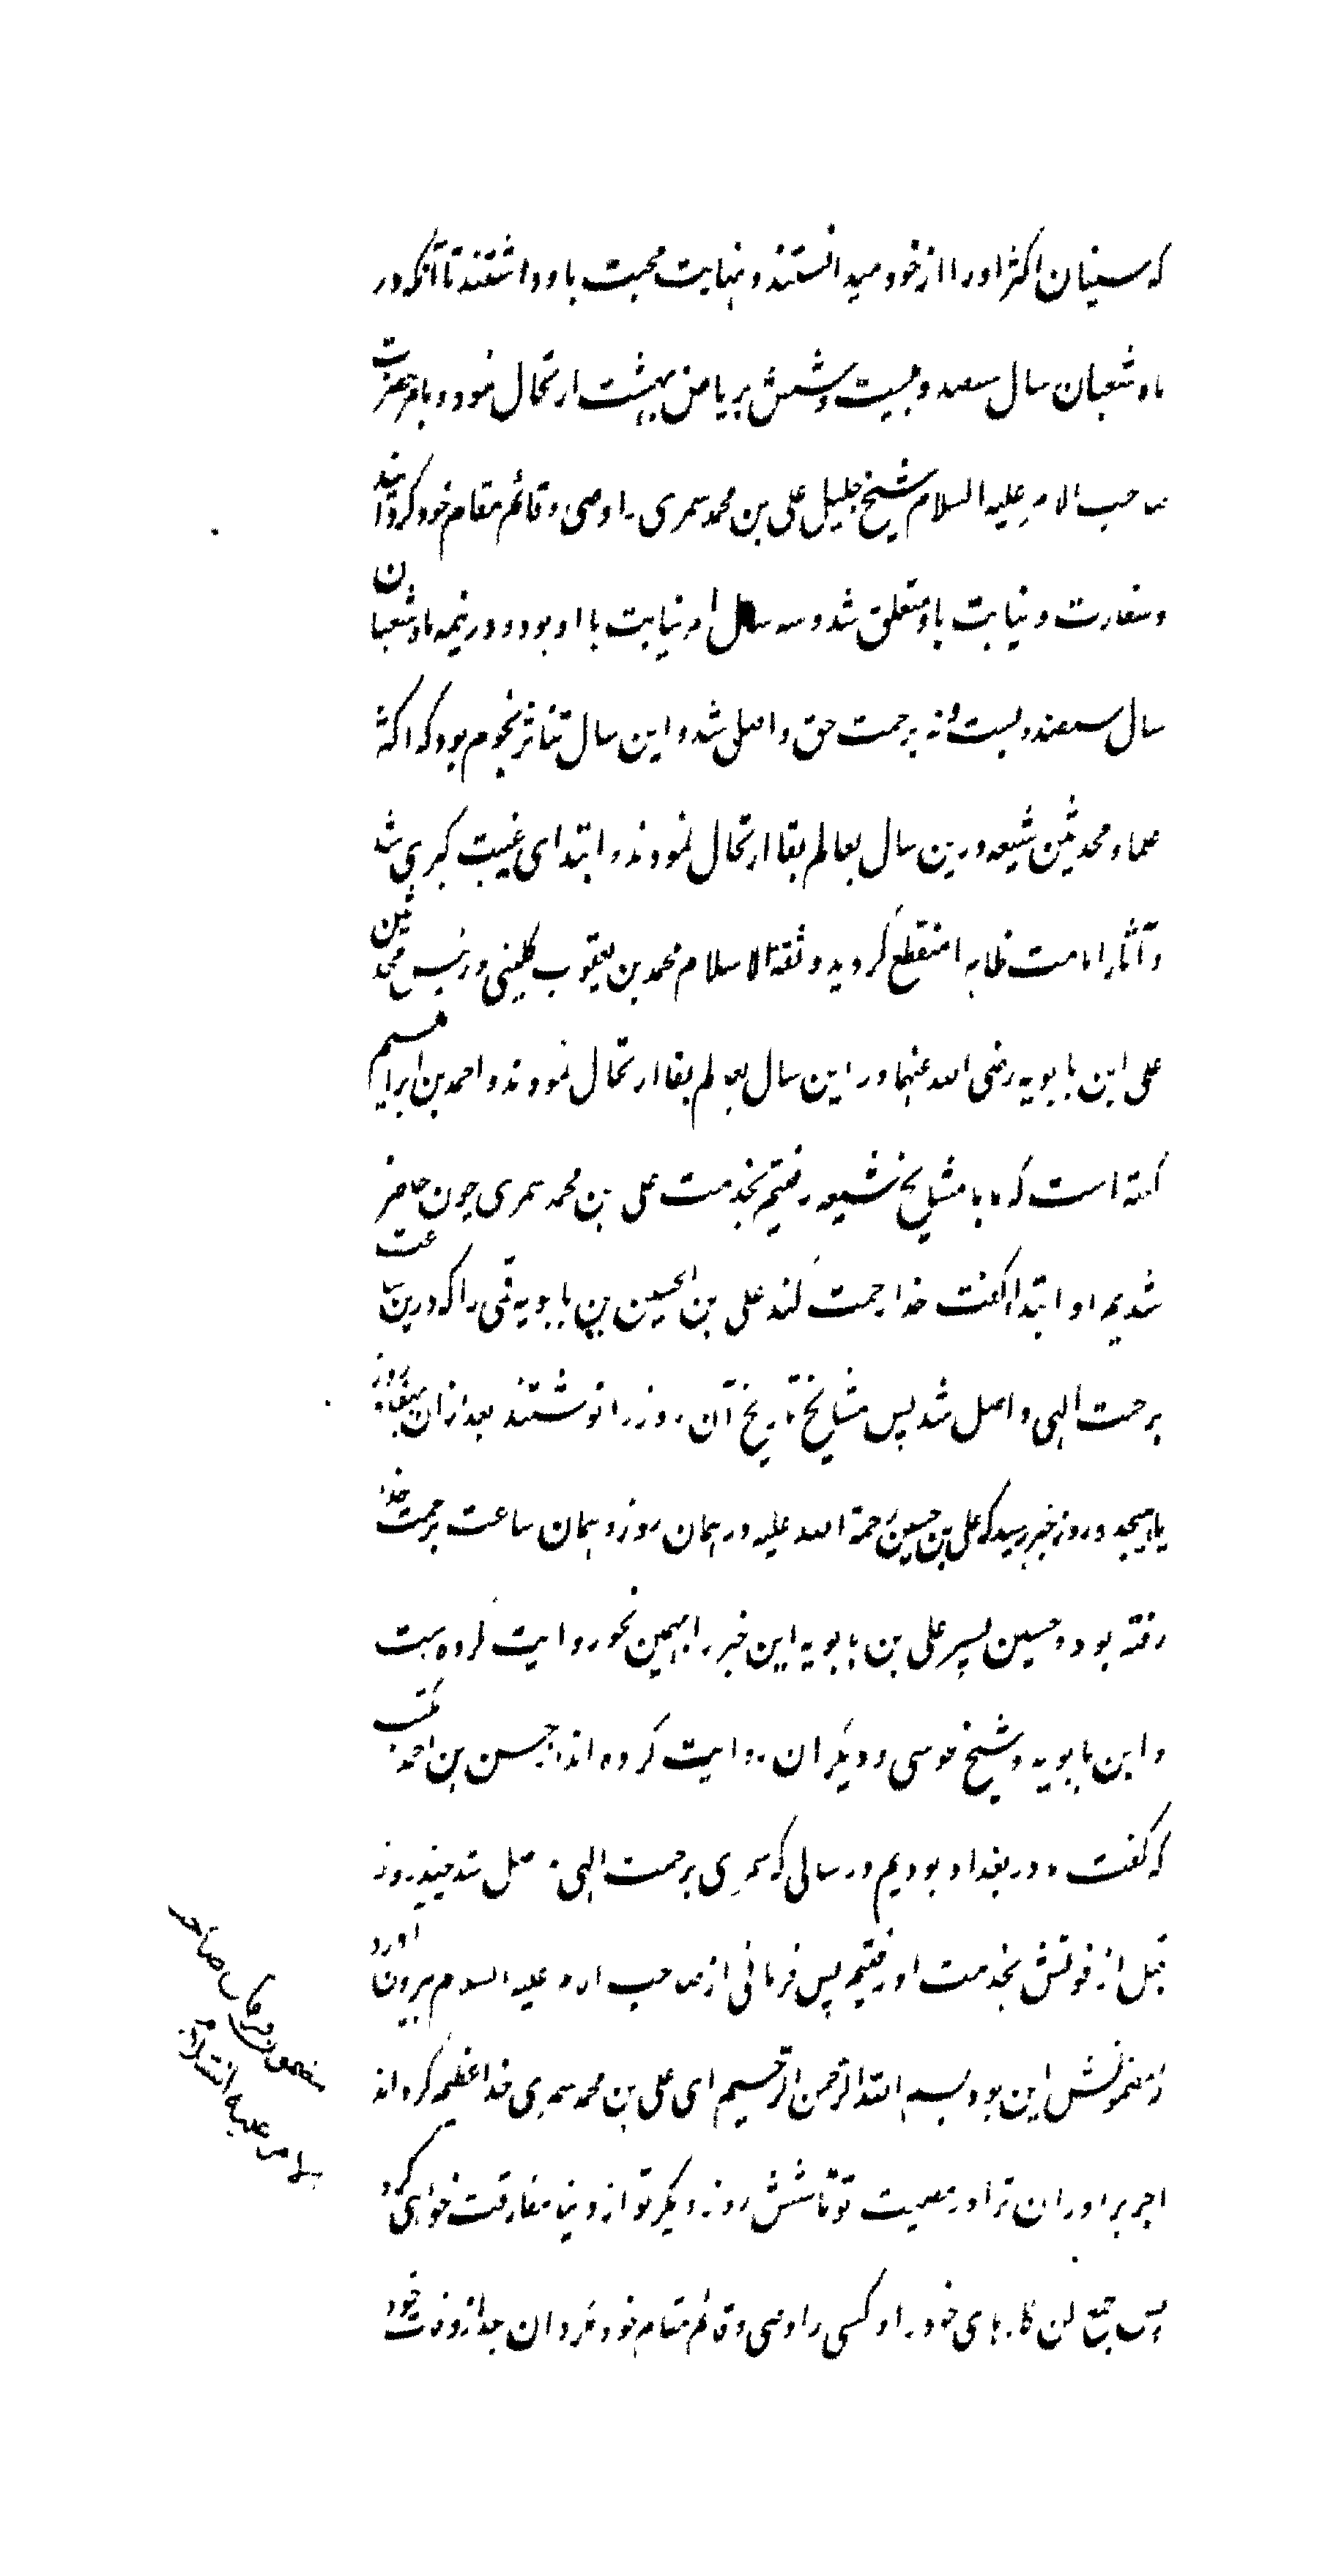 که سنیان اکثر او را از خود میدانستند و نهایت محبت باو داشتند تا آنکه در
ماه شعبان سال سیصد و بیست و شش بریاض بهشت ارتحال نمود و بامر حضرت
صاحب الامر علیه السلام شیخ جلیل علی بن محمد سمری را وصی و قائم مقام خود کردانید
و سفارت و نیابت باو متعلق شد و سه سال امر نیابت با او بود و در نیمه ماه شعبان
سال سیصد و بیست و نه برحمت حق واصل شد و این سال تناثر نجوم بود که اکثر
علما و محدثین شیعه درین سال بعالم بقا ارتحال نمودند و ابتدای غیبت کبری شد
و آثار امامت ظاهرا منقطع گردید و ثقة الاسلام محمد بن یعقوب کلینی و رئیس محدثین
علی ابن بابویه رضی الله عنهما در این سال بعالم بقا ارتحال نمودند و احمد بن ابراهیم
گفته است که ما با مشایخ شیعه رفتیم بخدمت علی بن محمد سمری چون حاضر
شدیم او ابتدا گفت خدا رحمت کند علی بن الحسین بن بابویه قمی را که درین ساعت
برحمت الهی واصل شد پس مشایخ تاریخ آن روز را نوشتند بعد از آن هفده روز
یا هیجده روز خبر رسید که علی بن حسین رحمة الله علیه در همان روز و همان ساعت برحمت خدا
رفته بود و حسین پسر علی بن بابویه این خبر را بهمین نحو روایت کرده است
و ابن بابویه و شیخ طوسی و دیگران روایت کرده اند از حسن بن احمد مکتب
که گفت ما در بغداد بودیم در سالی که سمری برحمت الهی واصل شد چند روز
قبل از فوتش بخدمت او رفتیم پس فرمانی از صاحب الامر علیه السلام بیرون آورد
که مضمونش این بود بسم الله الرحمن الرحیم ای علی بن محمد سمری خدا عظیم کرداند
اجر برادران ترا در مصیبت تو تا شش روز دیگر تو از دنیا مفارقت خواهی کرد
پس جمع کن کارهای خود را و کسی را وصی و قائم مقام خود مگردان بعد از وفات خود
مضمون فرمان صاحب
الامر علیه السلام